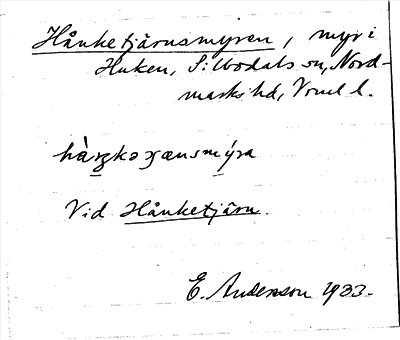 Hånketjärnsmyren, myr i
Huken, Silbodals sn, Nord-
marks hd, Vrml l.
hàŋkəɟænsmy̆ra
Vid Hånketjärn.
E. Anderson 1933.